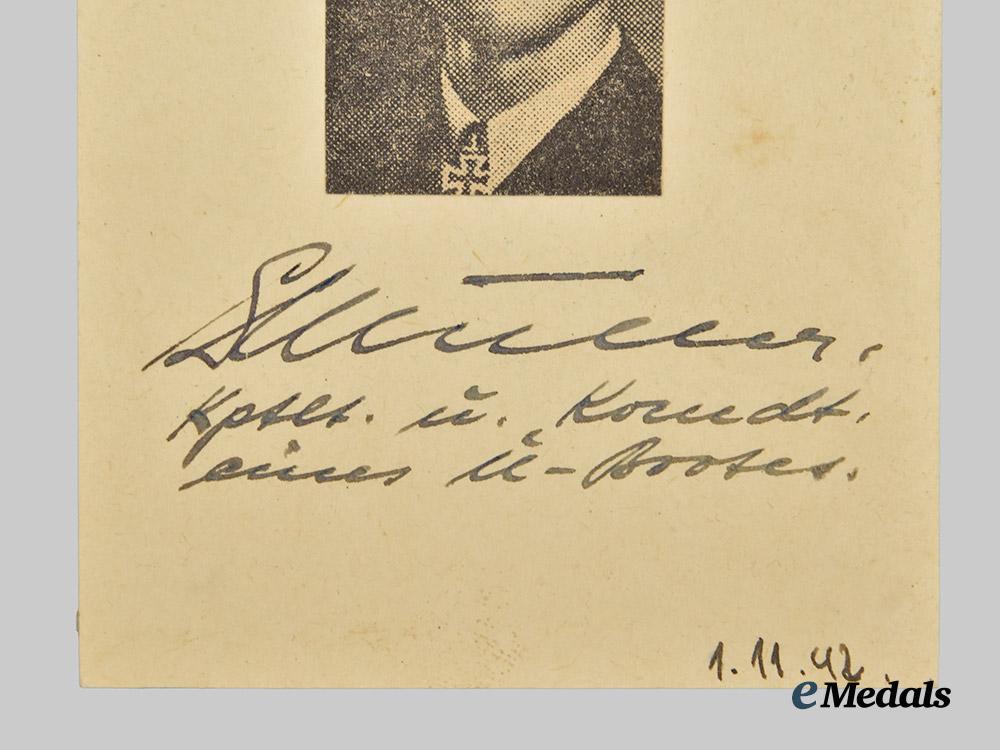 Kptlt. u. Komdt.
eines U-Bootes.
1.11.42
eMedals